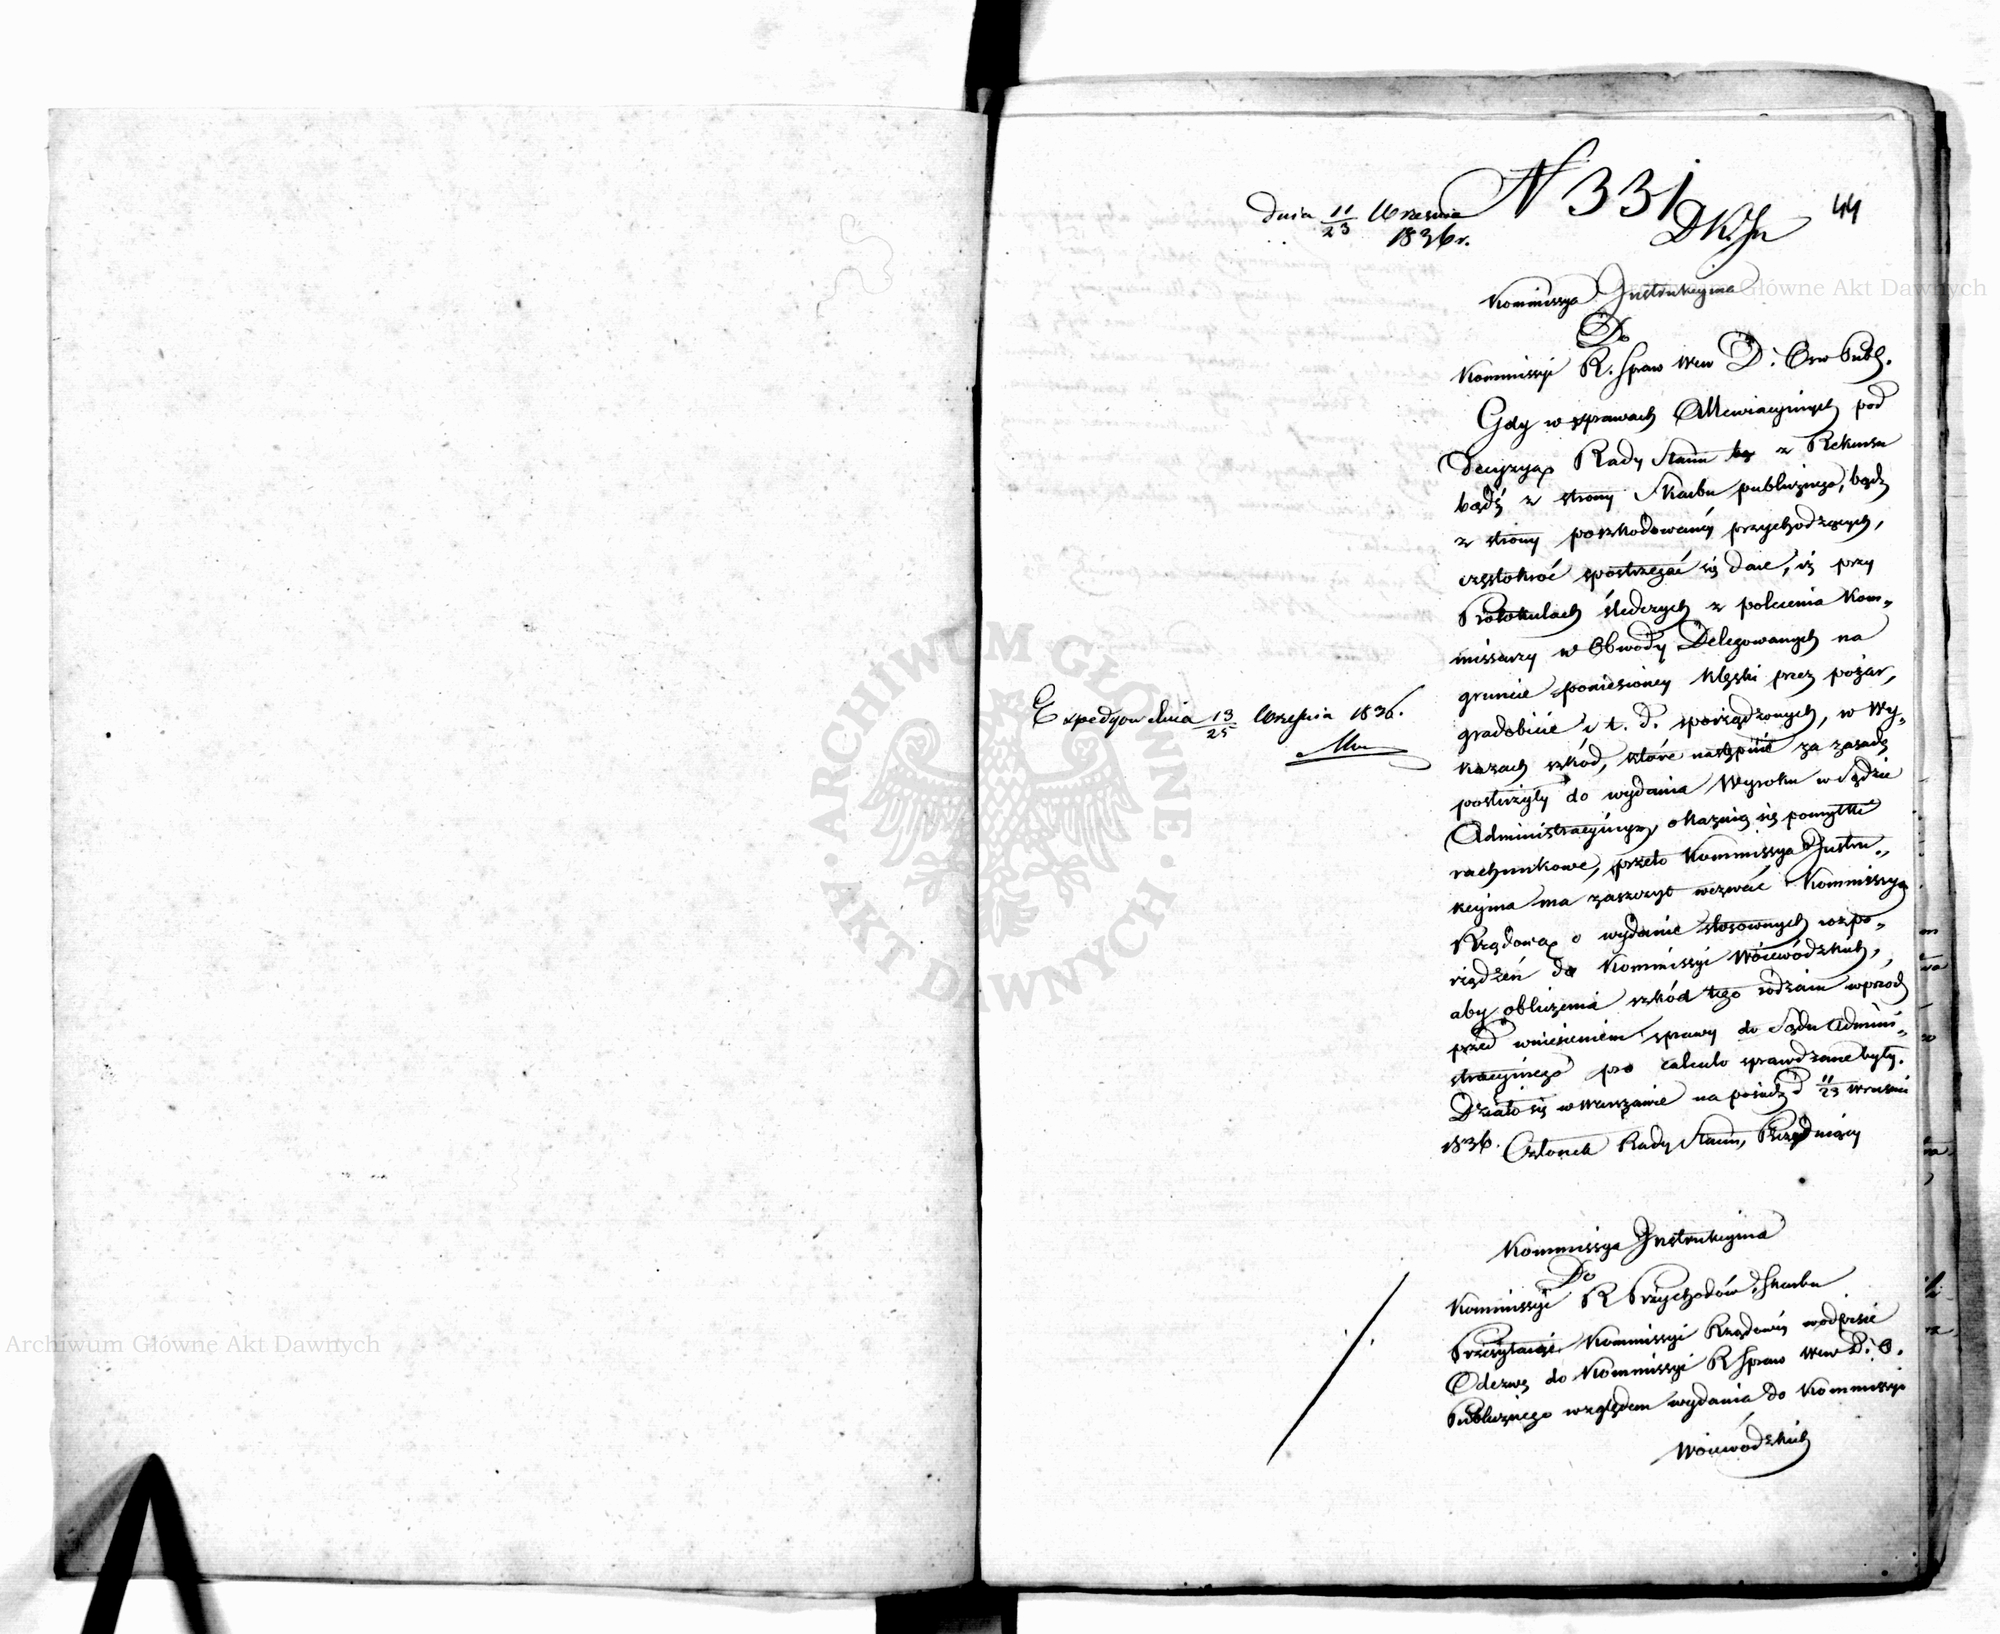 N 331
DKIn
44
Dnia 11/23 Września
1836 r.
Kommissya Instrukcyjna
Do
Kommissyi R. Spraw Wew D. i Osw Publ.
Gdy w sprawach Allewiacyjnych pod
decyzyą Rady Stanu z Rekursu
bądź z strony Skarbu publicznego, bądź
z strony poszkodowanéy przychodzących,
częstokroć spostrzegać się daie, iż przy
Protokułach śledczych z polecenia Kom-
missarzy w Obwody Delegowanych na
gruncie poniesionéy klęski przez pożar,
gradobicie i t. d. sporządzonych, w Wy-
kazach szkód, które następnie za zasadę
posłużyły do wydania Wyroku w Sądzie
Administracyinym, okazuią się pomyłki
rachunkowe, przeto Kommissya Instru-
kcyjna ma zaszczyt wezwać Kommissyą
Rządową o wydanie stosownych rozpo-
rządzeń do Kommissyi Woiewódzkich,
aby obliczenia szkód tego rodzaiu wprzód
przed wniesieniem sprawy do Sądu Admini-
stracyinego pro calculo sprawdzane były.
Działo się w Warszawie na posiedz d 11/23 Wrześni
1836. Członek Rady Stanu, Prezyduiący
Expedyow dnia 13/25 Września 1836.
Kommissya Instrukcyjna
Do
Kommissyi R Przychodów i Skarbu
Przesyłaiąc Kommissyi Rządowéy w odpisie
Odezwę do Kommissyi R Spraw Wew D. i O.
Publicznego względem wydania do Kommissyi
Woiewódzkich
Archiwum Główne Akt Dawnych
Archiwum Główne Akt Dawnych
ARCHIWUM GŁÓWNE
AKT DAWNYCH